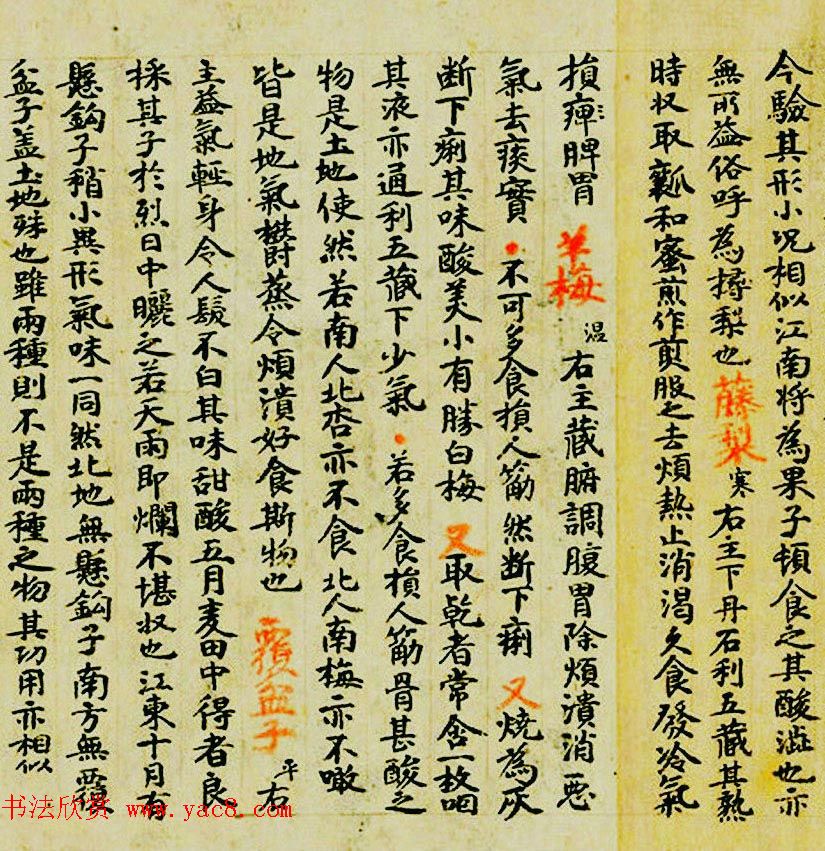 今驗其形小況相似江南將為果子頓食之其酸澁也亦
無所益俗呼為㯆梨也 藤梨 寒 右主下丹石利五藏其熟
時收取瓤和蜜煎作煎服之去煩熱止消渴久食發冷氣
損痺脾胃 羊梅 温 右主藏腑調腹胃除煩潰消惡
氣去痰實 • 不可多食損人筋然斷下痢 又 燒為灰
断下痢其味酸美小有勝白梅 又 取乾者常含一枚咽
其液亦通利五藏下少氣 • 若多食損人筋骨甚酸之
物是土地使然若南人北杏亦不食北人南梅亦不噉
皆是地氣欝蒸令煩潰好食斯物也 覆盆子 平 右
主益氣輕身令人髮不白其味甜酸五月麦田中得者良
採其子於烈日中曬之若天雨即爛不堪收也江東十月有
懸鈎子稍小異形氣味一同然北地無懸鈎子南方無覆
盆子盖土地殊也雖兩種則不是兩種之物其功用亦相似
书法欣赏 www.yac8.com